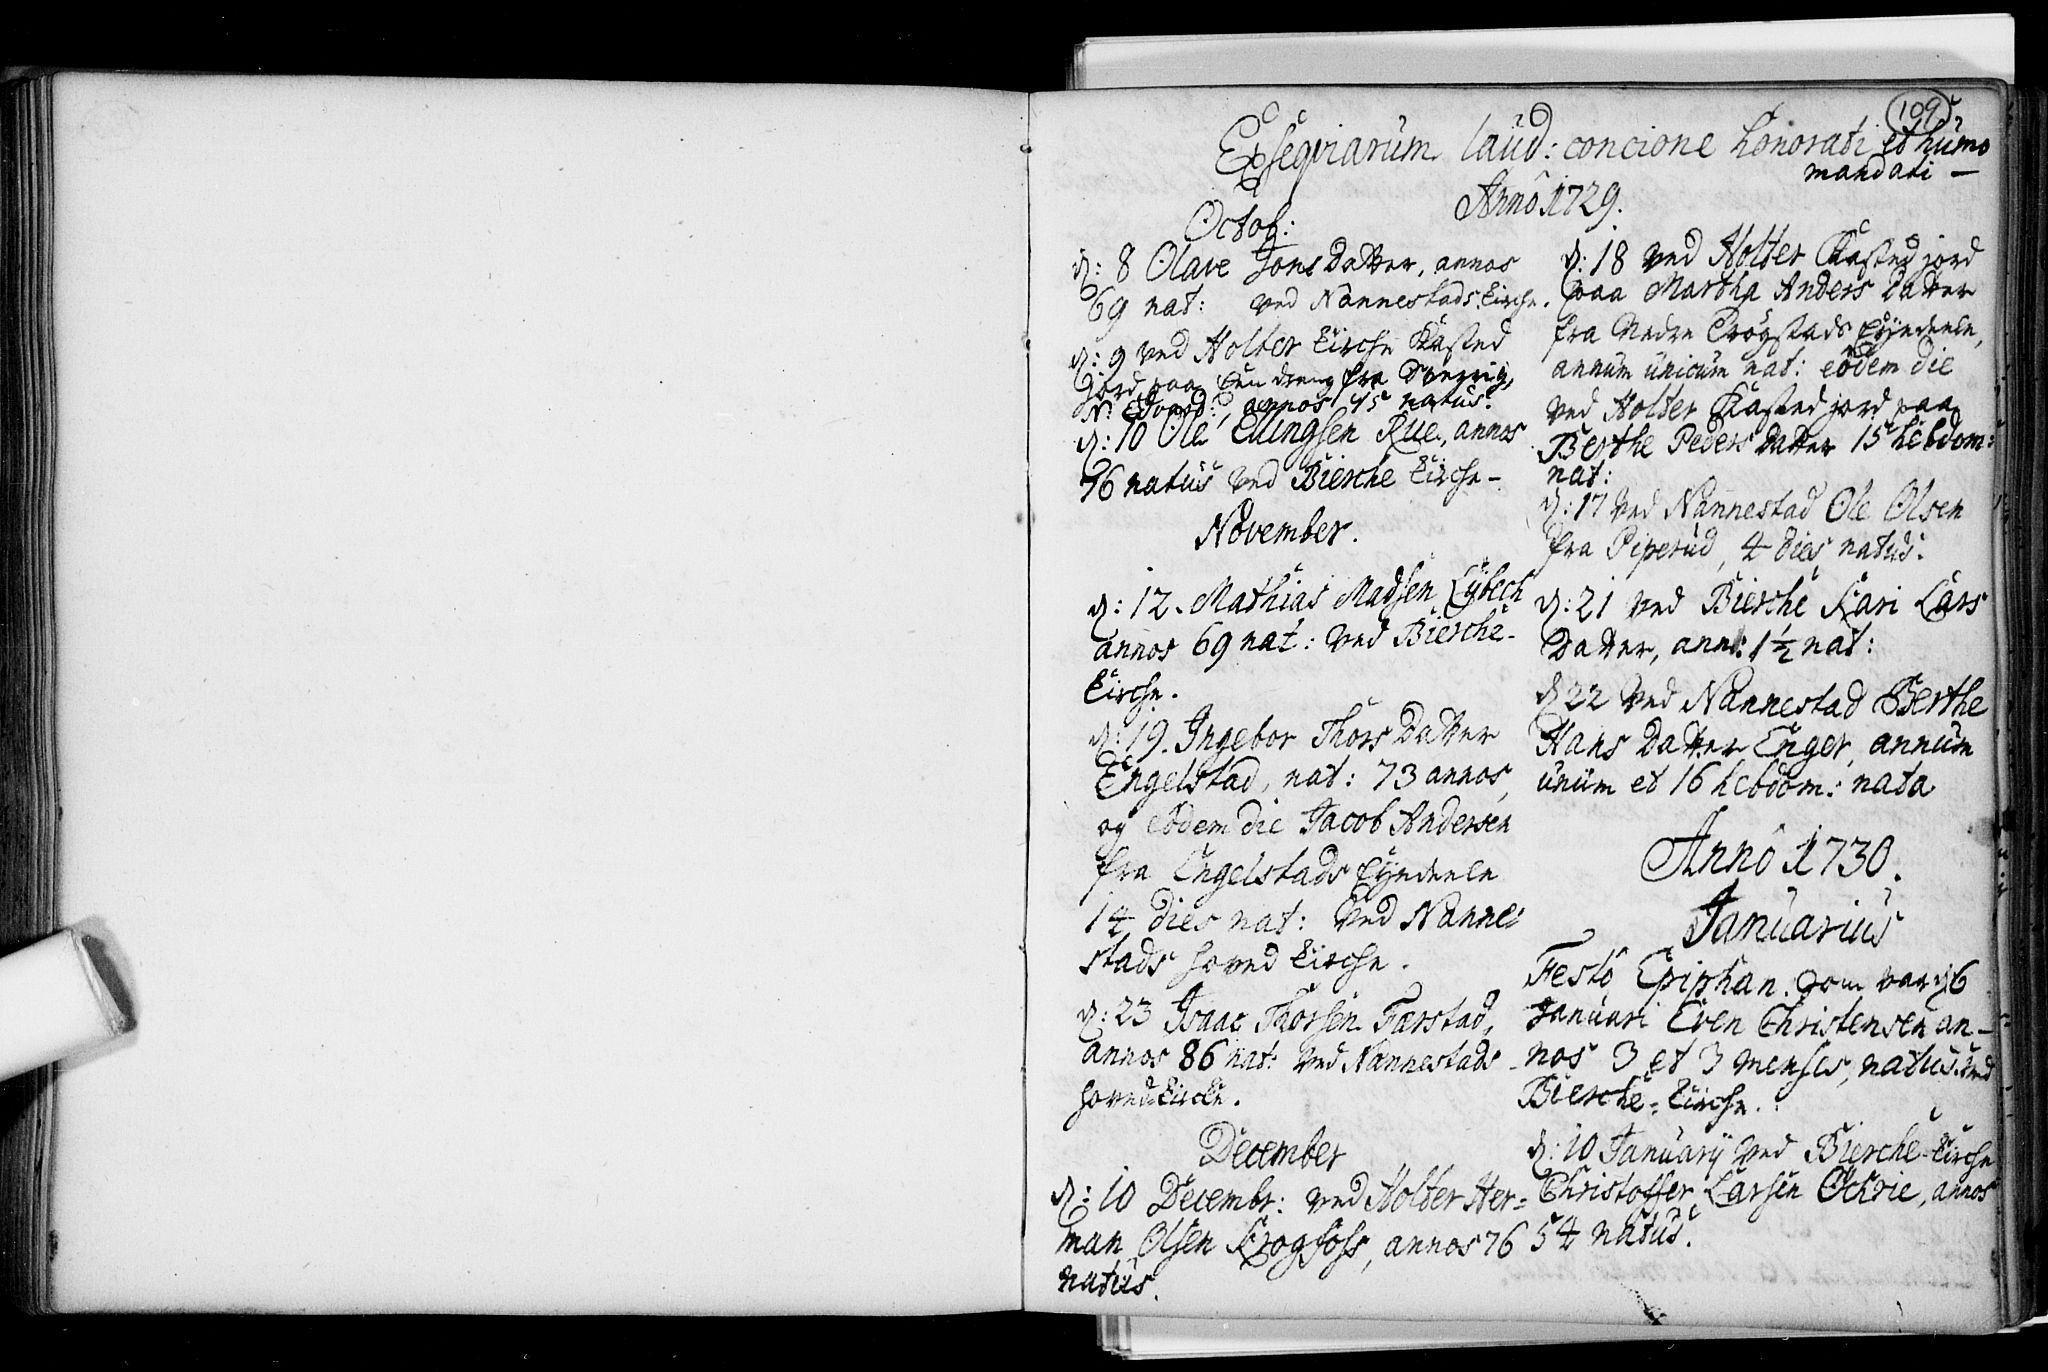 109.
Exseqviarum laud: concione honorati et humo
mandati —
Anno 1729.
Octob:
d: 8 Olave Jons Datter, annos
69 nat: ved Nannestads Kirche.
d: 9 ved Holter Kirche Kasted
jord paa Een dreng fra Sverrig,
N. Edvard: annos 15 natus.
d: 10 Ole Ellingsen Rue, annos
76 natus ved Bierche Kirche -
November.
d: 12. Mathias Madsen Lybech
annos 69 nat: ved Bierche-
Kirche.
d: 19. Ingebor Thors Datter
Engelstad, nat: 73 annos,
og eodem die Jacob Andersen
fra Engelstads Eyendeele
14 dies nat: ved Nanne:
stads hoved Kirche.
d: 23 Isaac Thorsen Færstad,
annos 86 nat: ved Nannestads
hoved-Kirche.
December
d: 10 Decembr: ved Holter Her=
man Olsen Krogfoss, annos 76
natus.
d: 18 ved Holter Kasted jord
paa Martha Anders Datter
fra Nedre Trøgstads Eyendeele,
annum unicum nat: eodem die
ved Holter Kasted jord paa
Berthe Peders Datter 15 hebdom:
nat:
d: 17 ved Nannestad Ole Olsen
fra Piperud, 4 dies natus.
d: 21 ved Bierche Kari Lars
Datter, ann: 1 1/2 nat:
d 22 ved Nannestad Berthe
Hans Datter Enger, annum
unum et 16 hebdom: nata
Anno 1730.
Januarius
Festo Epiphan. som var d 6
Januari Even Christensen an-
nos 3 et 3 menses, natus. ved
Bierche-Kirche.
d: 10 Januarij ved Bierche-Kirche
Christoffer Larsen Ochrie, annos
54 natus.